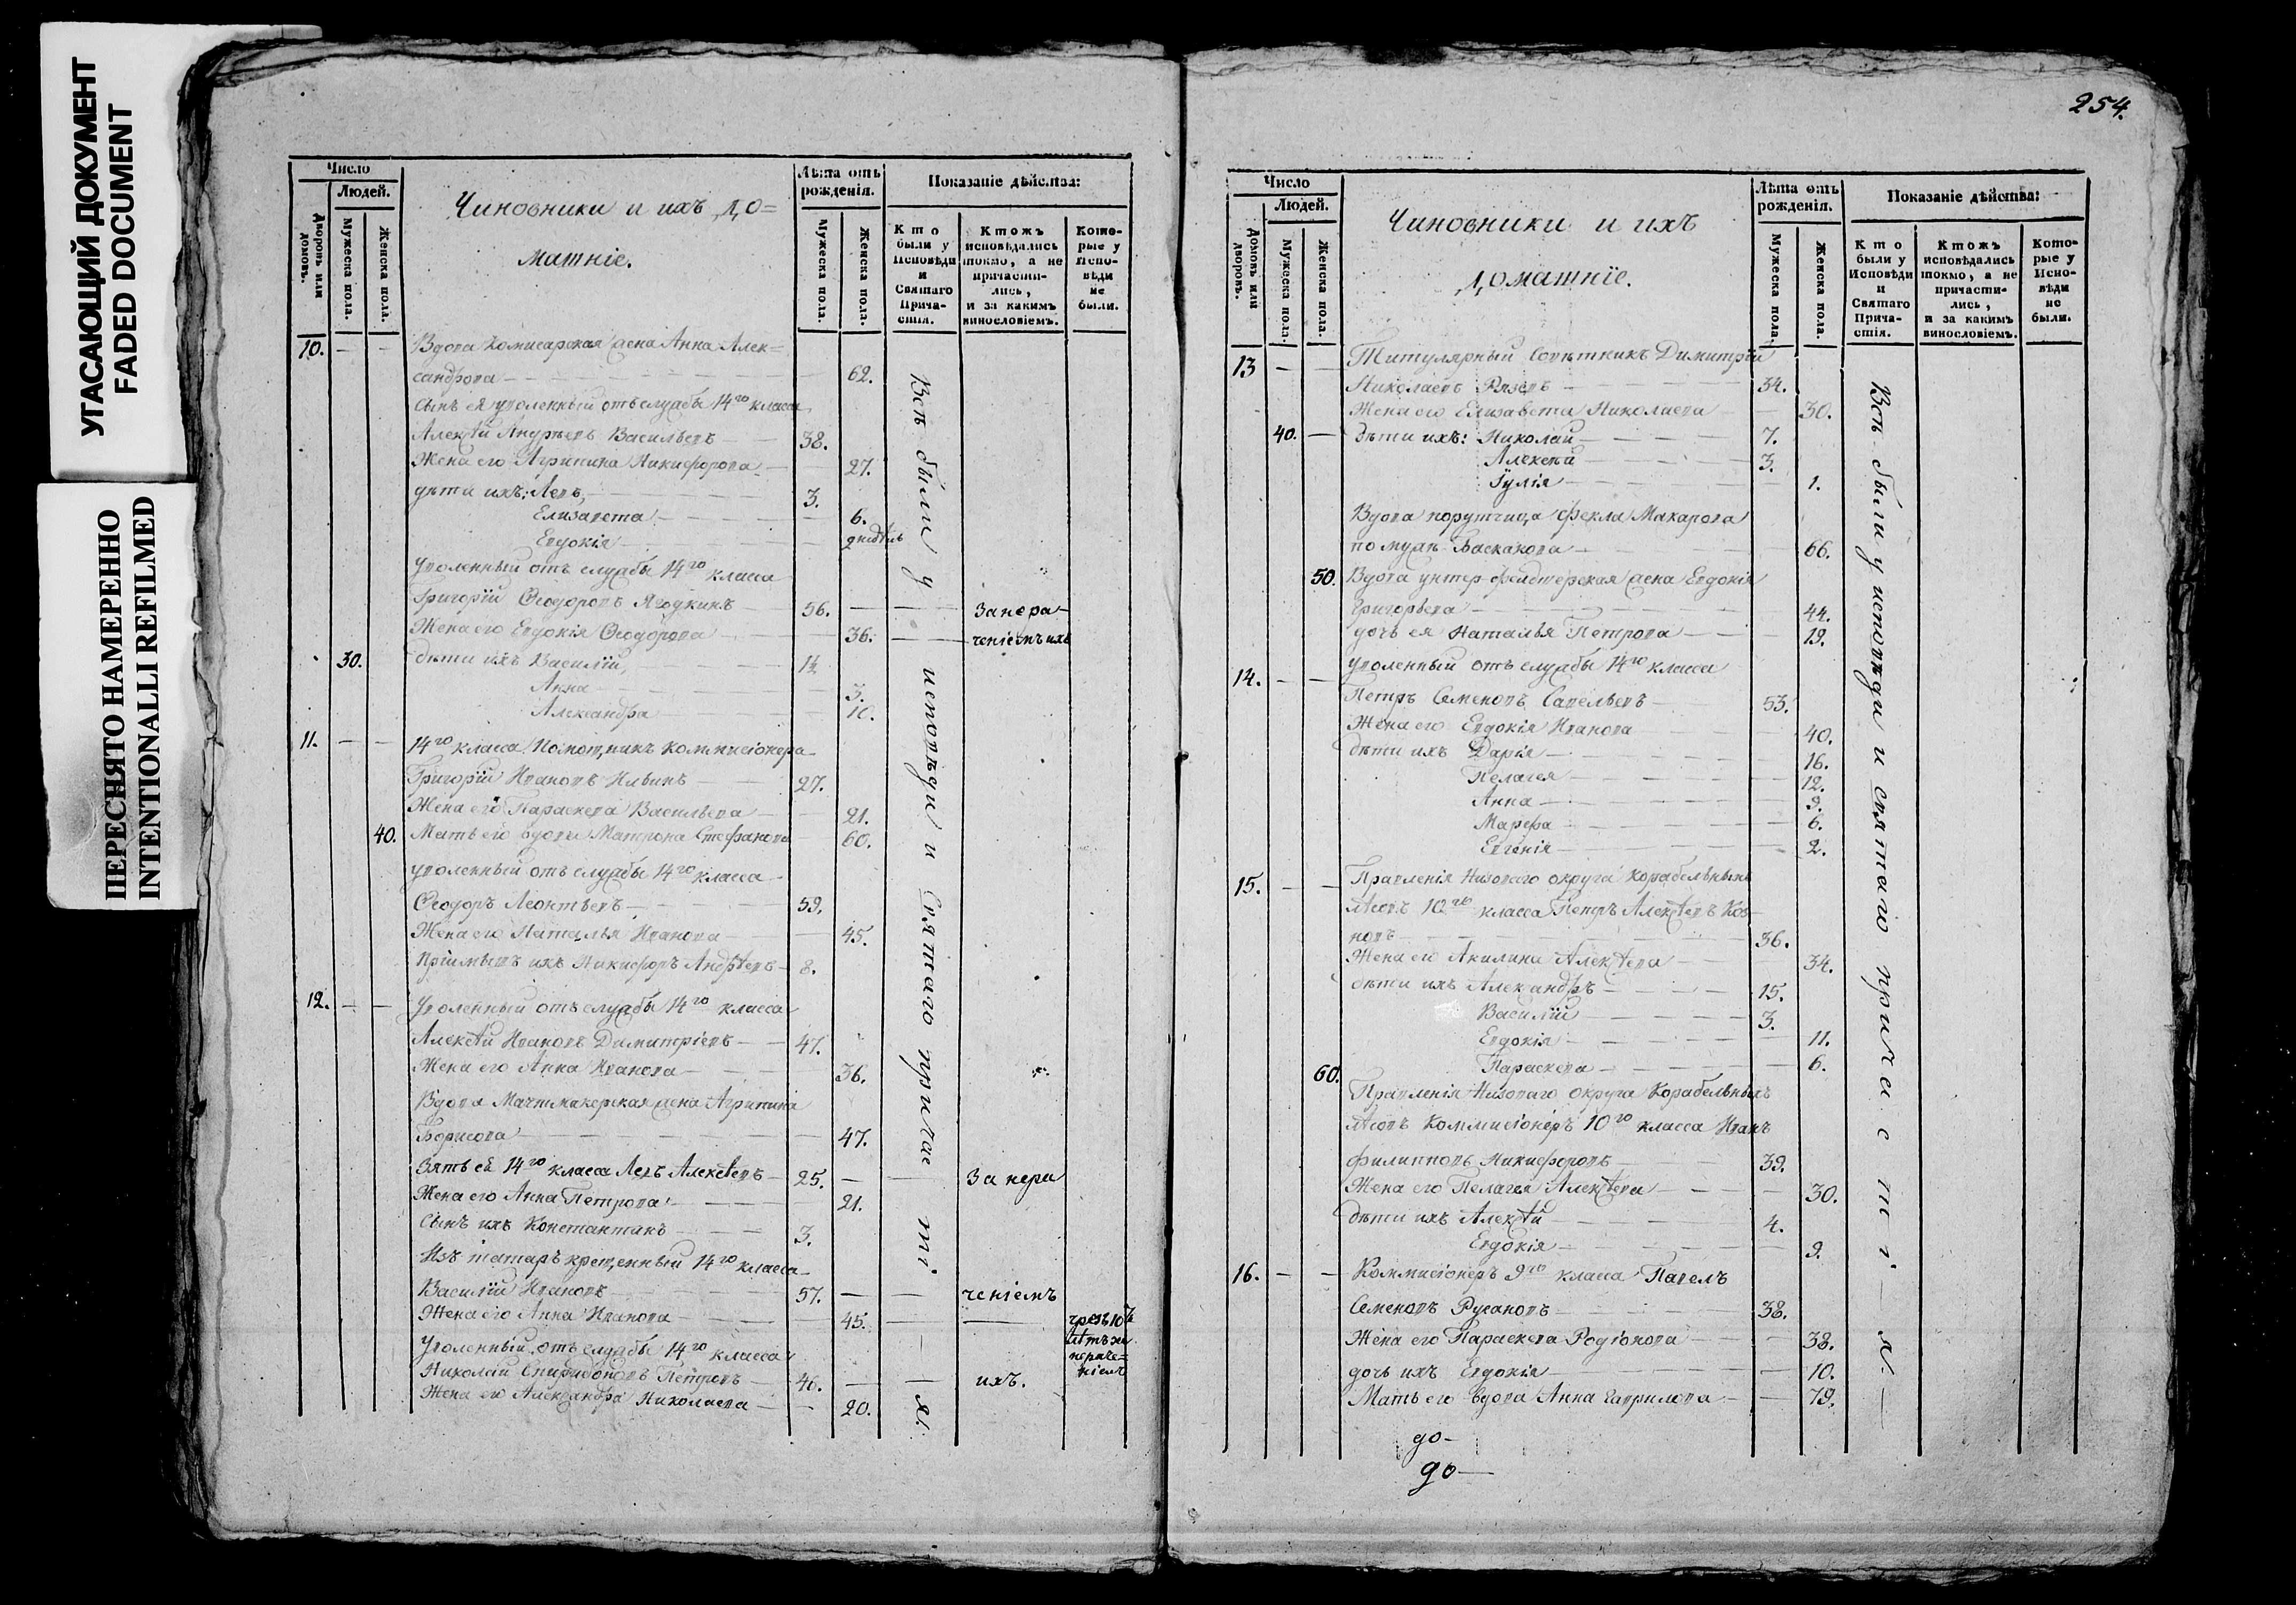 УГАСАЮЩИЙ ДОКУМЕНТ
FADED DOCUMENT
ПЕРЕСНЯТО НАМЕРЕННО
INTENTIONALLI REFILMED
Число
Людей.
Дворовъ или домовъ.
Мужеска пола.
Женска пола.
Чиновники и ихъ до=
машніе.
Лѣта отъ
рожденія.
Мужеска пола.
Женска пола.
Показаніе дѣйства:
Кто
были у
Исповѣди
и
Святаго
Прича-
стія.
Ктожъ
исповѣдались
токмо, а не
причасти-
лись,
и за какимъ
винословіемъ.
Кото-
рые у
Испо-
вѣди
не
были.
10. — — Вдова Комисарская жена Анна Алек=
сандрова — 62.
Сынъ ея уволенный отъ службы 14го класса
Алексѣй Андреевъ Васильевъ — 38.
Жена его Агрипина Никифорова — 27.
дѣти ихъ: Левъ, — 3.
Елизавета — 6.
Евдокія —
Уволенный отъ службы 14го класса
Григорій Ѳеодоровъ Ягодкинъ — 56. — — За нера-
Жена его Евдокія Ѳеодорова — 36. — — ченіемъ ихъ
30. дѣти ихъ Василій, —
Анна — 3.
Александра — 10.
11. — — 14го класса Помощникъ коммисіонера
Григорій Ивановъ Ильинъ — 27.
Жена его Параскева Васильева — 21.
40. Мать его вдова Матрона Стефанова 60.
уволенный отъ службы 14го класса
Ѳеодоръ Леонтьевъ — 59.
Жена его Наталья Иванова — 45.
Пріимышъ ихъ Никифоръ Андрѣевъ — 8.
12. — — Уволенный отъ службы 14го класса
Алексѣй Ивановъ Димитріевъ — 47.
Жена его Анна Иванова — 36.
Вдова Мачтмакерская жена Агрипина
Борисова — 47.
Зять ея 14го класса Левъ Алексѣевъ — 25. — — За нера
Жена его Анна Петрова — 21.
Сынъ ихъ Константинъ — 3.
Изъ татаръ крещенный 14го класса
Василій Ивановъ — 57. — — ченіемъ
Жена его Анна Иванова — 45. — —
Уволенный отъ службы 14го класса
Николай Спиридоновъ Петровъ — 46. — — ихъ.
Жена его Александра Николаева — 20.
Всѣ были у исповѣди и Святаго причастія.
254.
Число
Людей.
Домовъ или дворовъ.
Мужеска пола.
Женска пола.
Чиновники и ихъ
домашніе.
Лѣта отъ
рожденія.
Мужеска пола.
Женска пола.
Показаніе дѣйства:
Кто
были у
Исповѣди
и
Святаго
Прича-
стія.
Ктожъ
исповѣдались
токмо, а не
причасти-
лись,
и за какимъ
винословіемъ.
Кото-
рые у
Испо-
вѣди
не
были.
13 — — Титулярный Совѣтникъ Димитрій
Николаевъ — 34.
Жена его Елизавета Николаева — 30.
40. — дѣти ихъ: Николай — 7.
Алексѣй — 3.
Іулія — 1.
Вдова порутчица Фекла Макарова
по мужѣ Баскакова — 66.
50. Вдова унтер-фельдшерская жена Евдокія
Григорьева — 44.
дочь ея Наталья Петрова — 19.
14. — — уволенный отъ службы 14го класса
Петръ Семеновъ Савельевъ — 53.
Жена его Евдокія Иванова — 40.
дѣти ихъ Дарія — 16.
Пелагея — 12.
Анна — 9.
Марфа — 6.
Евгенія — 2.
15. — — Правленія Низоваго округа Корабельныхъ
лѣсовъ 10го класса Петръ Алексѣевъ Коз-
ловъ — 36.
Жена его Акилина Алексѣева — 34.
дѣти ихъ Александръ — 15.
Василій — 3.
Евдокія — 11.
60. Параскева — 6.
Правленія Низоваго округа Корабельныхъ
лѣсовъ Коммисіонеръ 10го класса Иванъ
Филипповъ Никифоровъ — 39.
Жена его Пелагея Алексѣева — 30.
дѣти ихъ Алексѣй — 4.
Евдокія — 9.
16. — — Коммисіонеръ 9го класса Павелъ
Семеновъ Русановъ — 38.
Жена его Параскева Родіонова — 38.
дочь ихъ Евдокія — 10.
Мать его вдова Анна Гаврилова — 79.
до-
до—
Всѣ были у исповѣди и святаго причастія